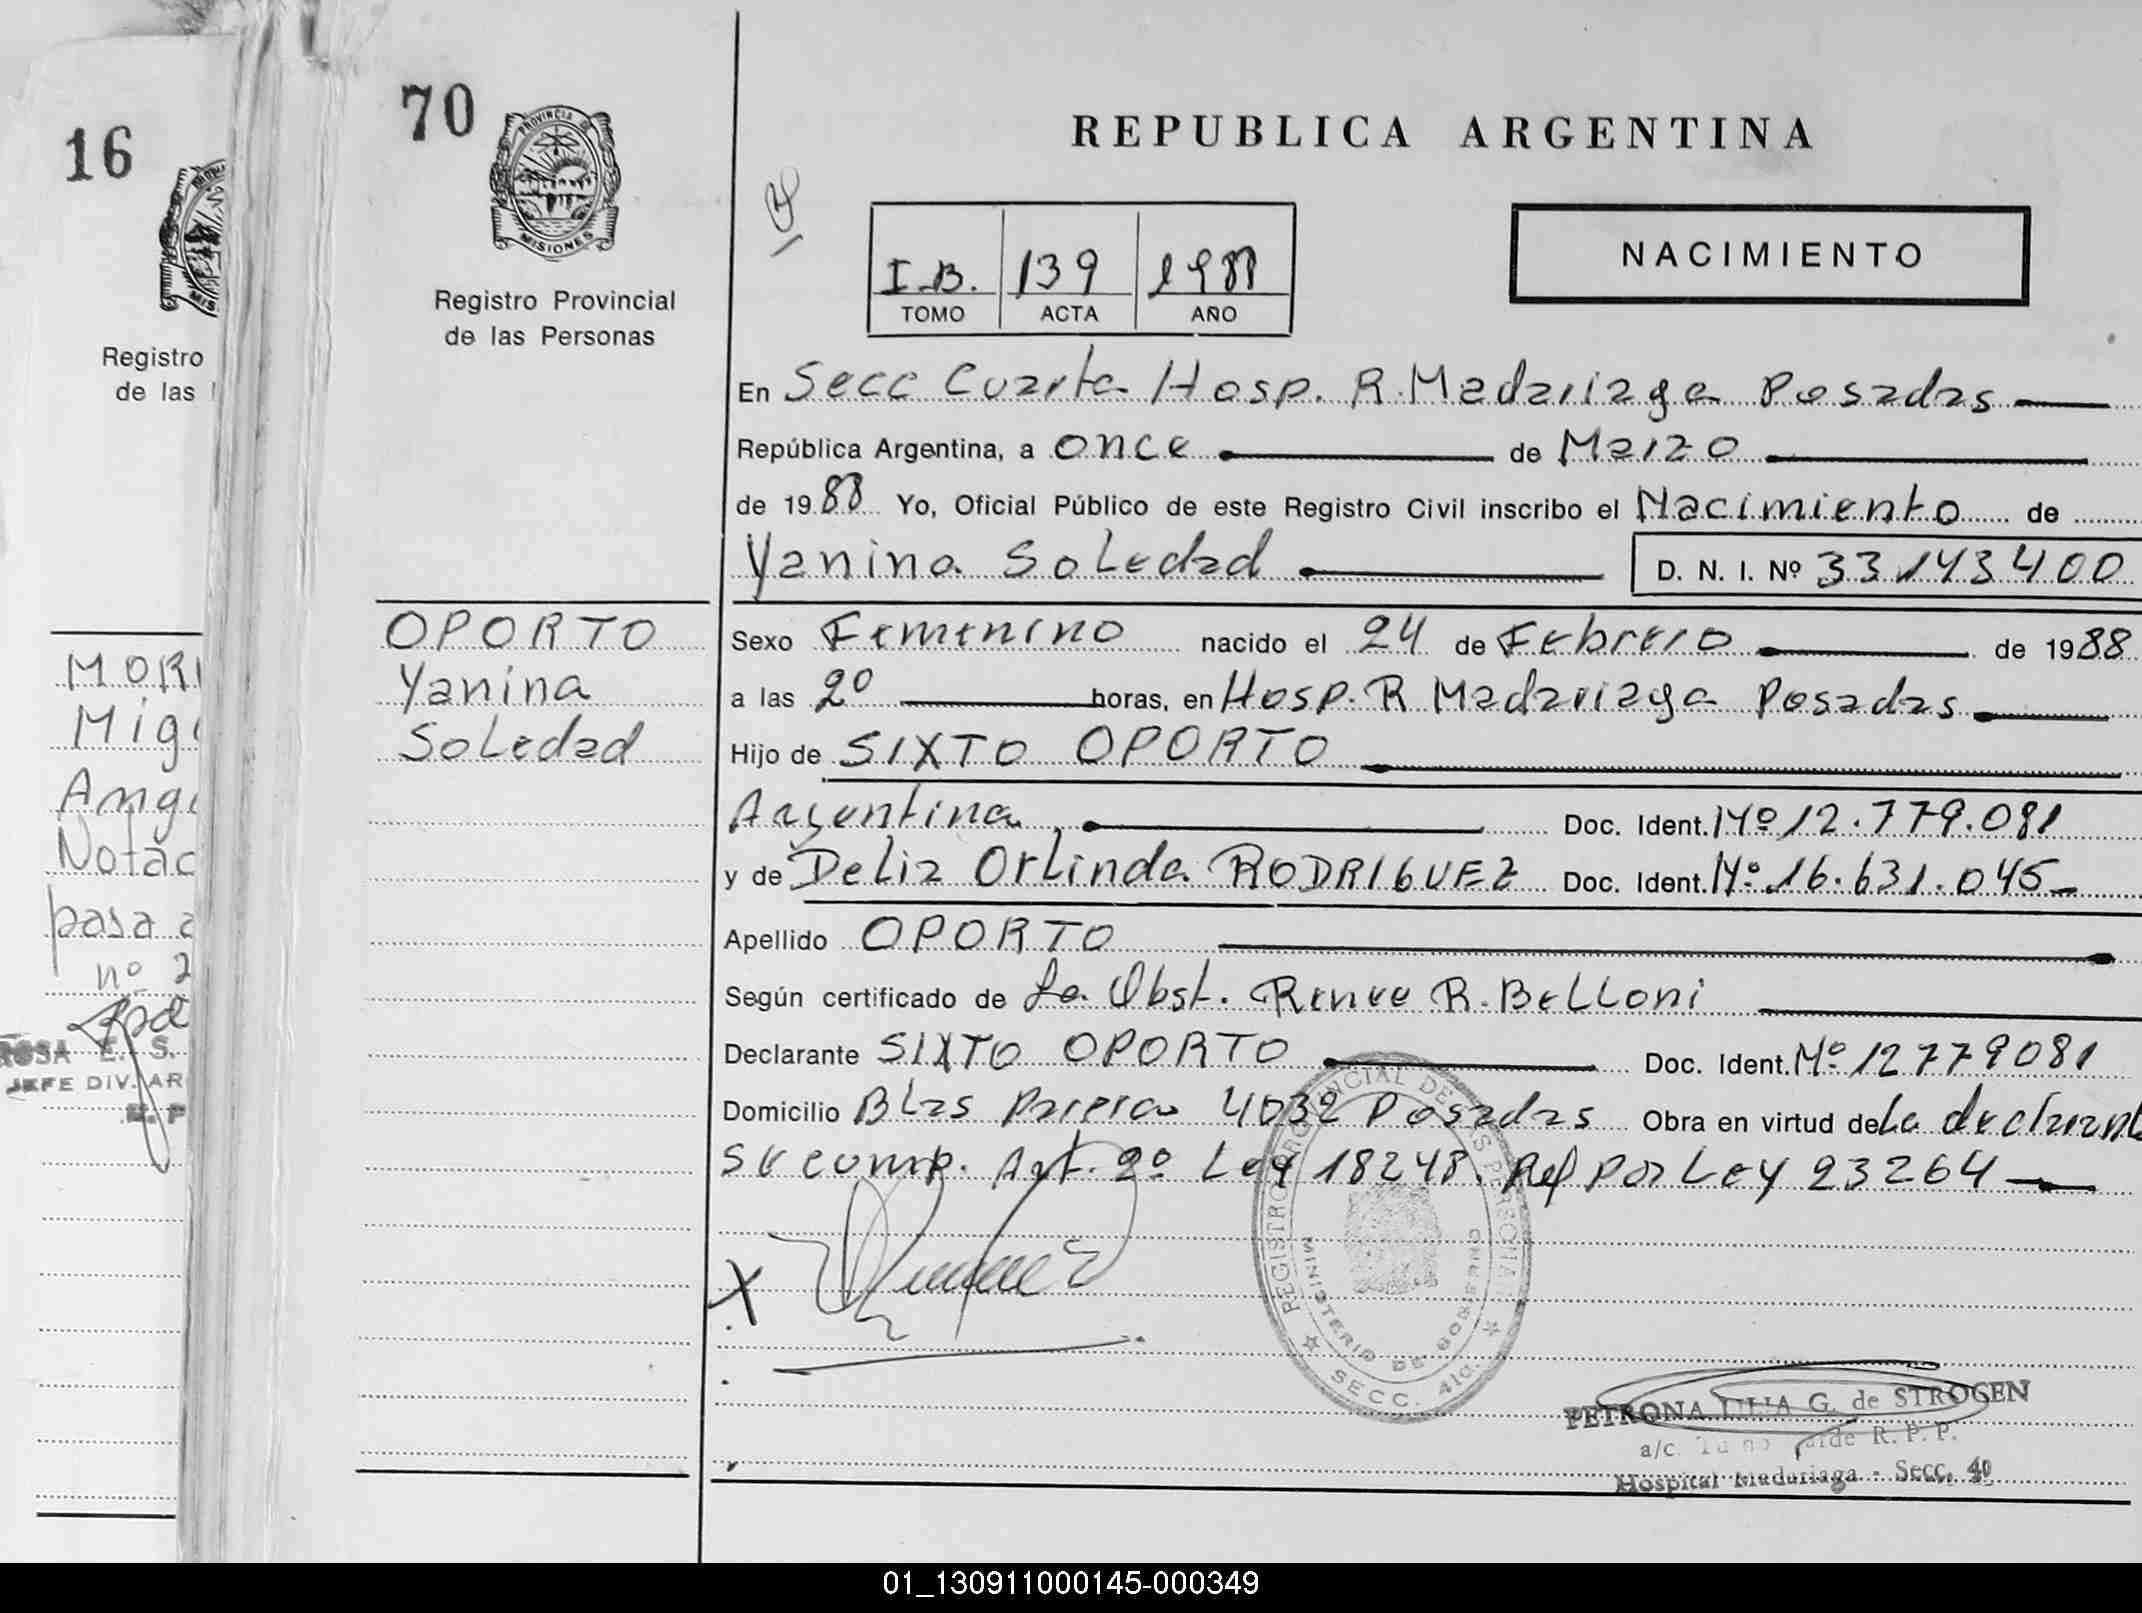 16
Registro
de las
MORI
Mig
Ang
Notac
pasa a
nº 2
ROSA E. S.
JEFE DIV. AR
70
PROVINCIA DE
MISIONES
Registro Provincial
de las Personas
OPORTO
Yanina
Soledad
REPUBLICA ARGENTINA
I.B. 139 1988
TOMO ACTA AÑO
NACIMIENTO
En Secc Cuarta Hosp. R. Madariaga Posadas
República Argentina, a once de Marzo
de 1988 Yo, Oficial Público de este Registro Civil inscribo el Nacimiento de
Yanina Soledad D. N. I. Nº 33.143.400
Sexo Femenino nacido el 24 de Febrero de 1988
a las horas, en Hosp. R Madariaga Posadas
Hijo de SIXTO OPORTO
Argentina Doc. Ident. Nº 12.779.081
y de Delia Orlinda RODRIGUEZ Doc. Ident. Nº 16.631.045
Apellido OPORTO
Según certificado de La Obst. Renee R. Belloni
Declarante SIXTO OPORTO Doc. Ident. Nº 12779081
Domicilio Blas Parera 4032 Posadas Obra en virtud de La declarant
Se comp. Art. 2º Ley 18248. Ref por Ley 23264
X
REGISTRO PROVINCIAL DE LAS PERSONAS
MINISTERIO DE GOBIERNO
SECC. 4ta.
PETRONA G. de STROGEN
a/c. R. P. P.
Hospital Madariaga - Secc. 4ª
01_130911000145-000349